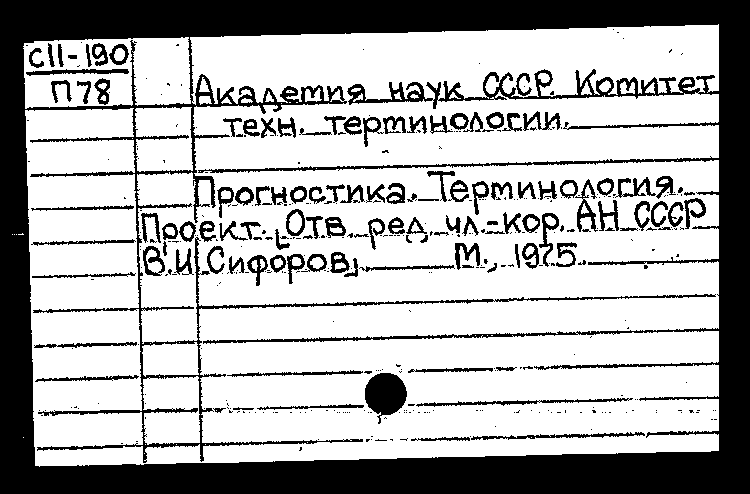 СII-190
П78
Академия наук СССР. Комитет
техн. терминологии.
Прогностика. Терминология.
Проект. [Отв. ред. чл.-кор. АН СССР
В.И. Сифоров]. М., 1975.